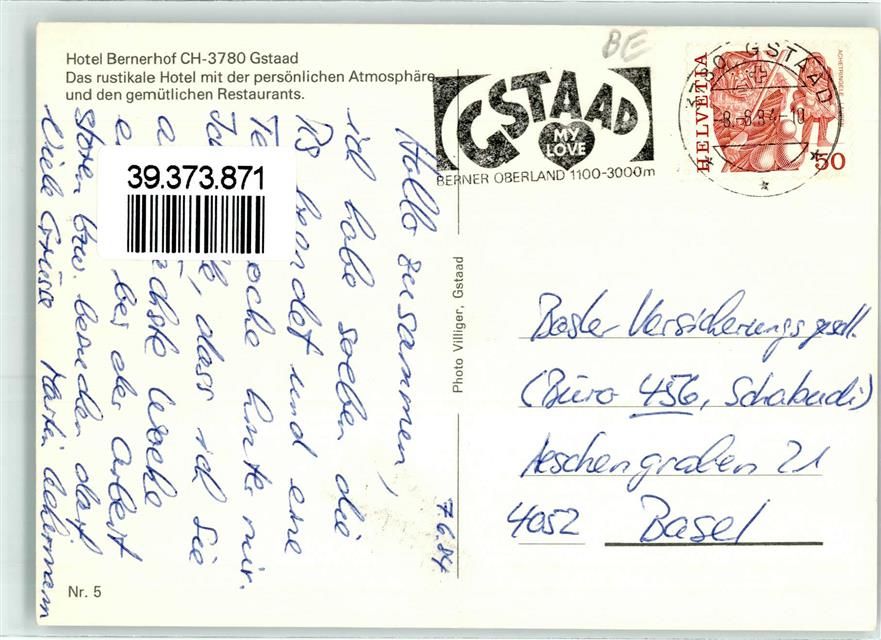 Hotel Bernerhof CH-3780 Gstaad
Das rustikale Hotel mit der persönlichen Atmosphäre
und den gemütlichen Restaurants.
BE
GSTAAD
MY
LOVE
BERNER OBERLAND 1100-3000m
3780 GSTAAD
-8.-6.84-10
HELVETIA
ACHETRINGELE
50
39.373.871
7.6.84
Hallo zusammen,
ich habe soeben die
RS beendet und eine
hinter mir.
dass ich Sie
nächste Woche
bei der Arbeit
stören bzw. besuchen darf
Viele Grüsse Martin Ackermann
Photo Villiger, Gstaad
Basler Versicherungsgesell.
(Büro 456, Schabudi)
Aeschengraben 21
4052 Basel
Nr. 5